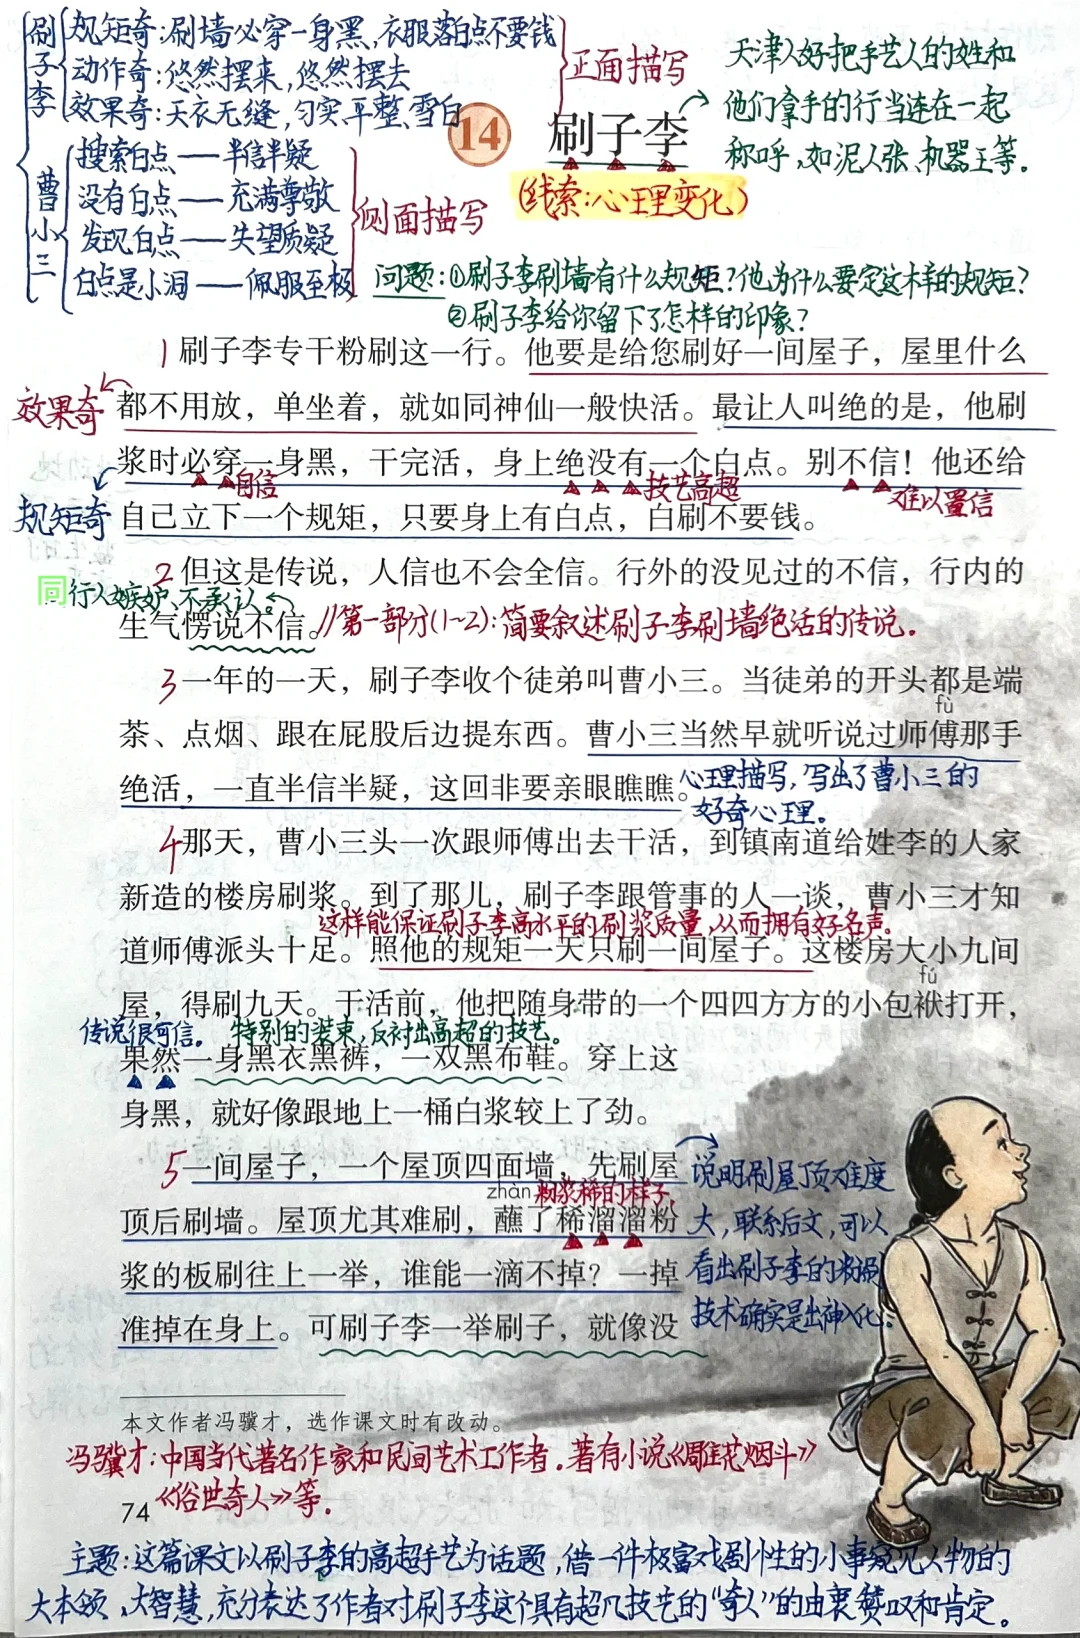 刷子李
规矩奇:刷墙必穿一身黑,衣服落白点不要钱
动作奇:悠然摆来,悠然摆去
效果奇:天衣无缝,匀实、平整、雪白
正面描写
曹小三
搜索白点——半信半疑
没有白点——充满尊敬
发现白点——失望质疑
白点是小洞——佩服至极
侧面描写
14 刷子李
(线索:心理变化)
天津人好把手艺人的姓和
他们拿手的行当连在一起
称呼,如泥人张、机器王等。
问题:①刷子李刷墙有什么规矩?他为什么要定这样的规矩?
②刷子李给你留下了怎样的印象?
1 刷子李专干粉刷这一行。他要是给您刷好一间屋子，屋里什么
效果奇
都不用放，单坐着，就如同神仙一般快活。最让人叫绝的是，他刷
浆时必穿一身黑，干完活，身上绝没有一个白点。别不信！他还给
自信
技艺高超
难以置信
规矩奇
自己立下一个规矩，只要身上有白点，白刷不要钱。
2 但这是传说，人信也不会全信。行外的没见过的不信，行内的
同行人嫉妒、不承认。
生气愣说不信。
//第一部分(1~2):简要叙述刷子李刷墙绝活的传说。
3 一年的一天，刷子李收个徒弟叫曹小三。当徒弟的开头都是端
fù
茶、点烟、跟在屁股后边提东西。曹小三当然早就听说过师傅那手
绝活，一直半信半疑，这回非要亲眼瞧瞧。
心理描写,写出了曹小三的
好奇心理。
4 那天，曹小三头一次跟师傅出去干活，到镇南道给姓李的人家
新造的楼房刷浆。到了那儿，刷子李跟管事的人一谈，曹小三才知
这样能保证刷子李高水平的刷浆质量,从而拥有好名声。
道师傅派头十足。照他的规矩一天只刷一间屋子。这楼房大小九间
fú
屋，得刷九天。干活前，他把随身带的一个四四方方的小包袱打开，
传说很可信。
特别的装束,反衬出高超的技艺。
果然一身黑衣黑裤，一双黑布鞋。穿上这
身黑，就好像跟地上一桶白浆较上了劲。
5 一间屋子，一个屋顶四面墙，先刷屋
zhàn
粉浆稀的样子。
顶后刷墙。屋顶尤其难刷，蘸了稀溜溜粉
浆的板刷往上一举，谁能一滴不掉？一掉
准掉在身上。可刷子李一举刷子，就像没
说明刷屋顶难度
大,联系后文,可以
看出刷子李的粉刷
技术确实是出神入化。
本文作者冯骥才，选作课文时有改动。
冯骥才:中国当代著名作家和民间艺术工作者。著有小说《雕花烟斗》
《俗世奇人》等。
74
主题:这篇课文以刷子李的高超手艺为话题,借一件极富戏剧性的小事窥见人物的
大本领、大智慧,充分表达了作者对刷子李这个具有超凡技艺的“奇人”的由衷赞叹和肯定。